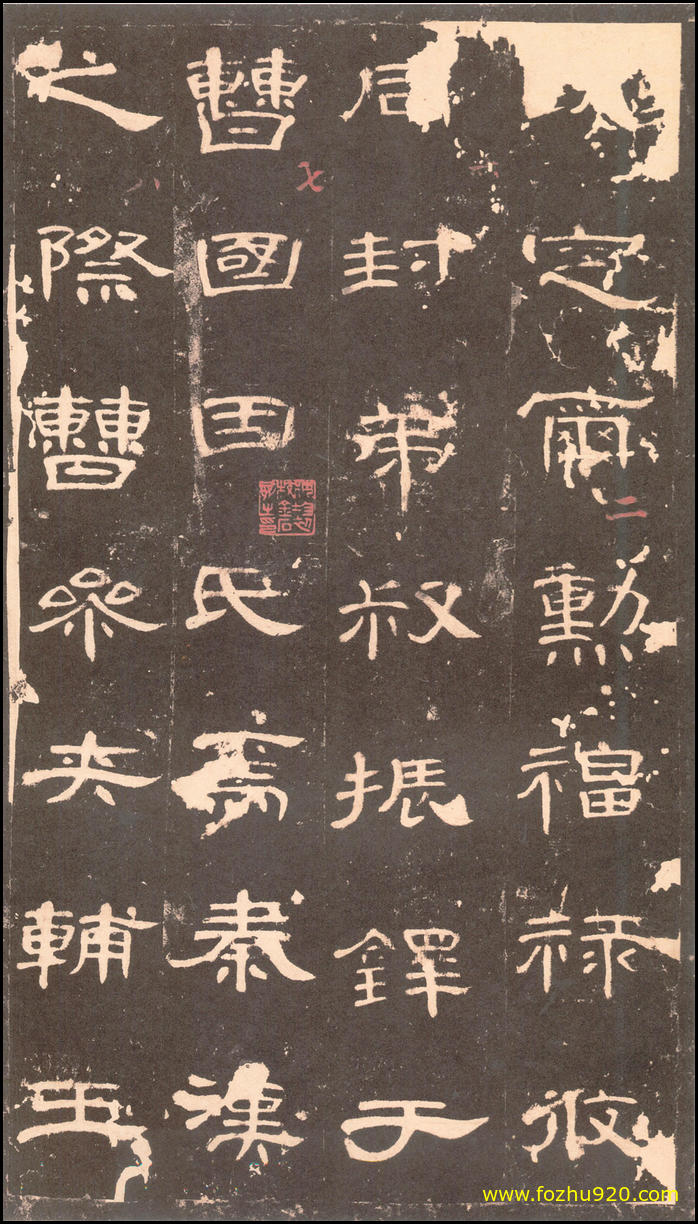 定爾勳福祿攸
同封弟叔振鐸于
曹國因氏焉秦漢
之際曹參夾輔王
www.fozhu920.com